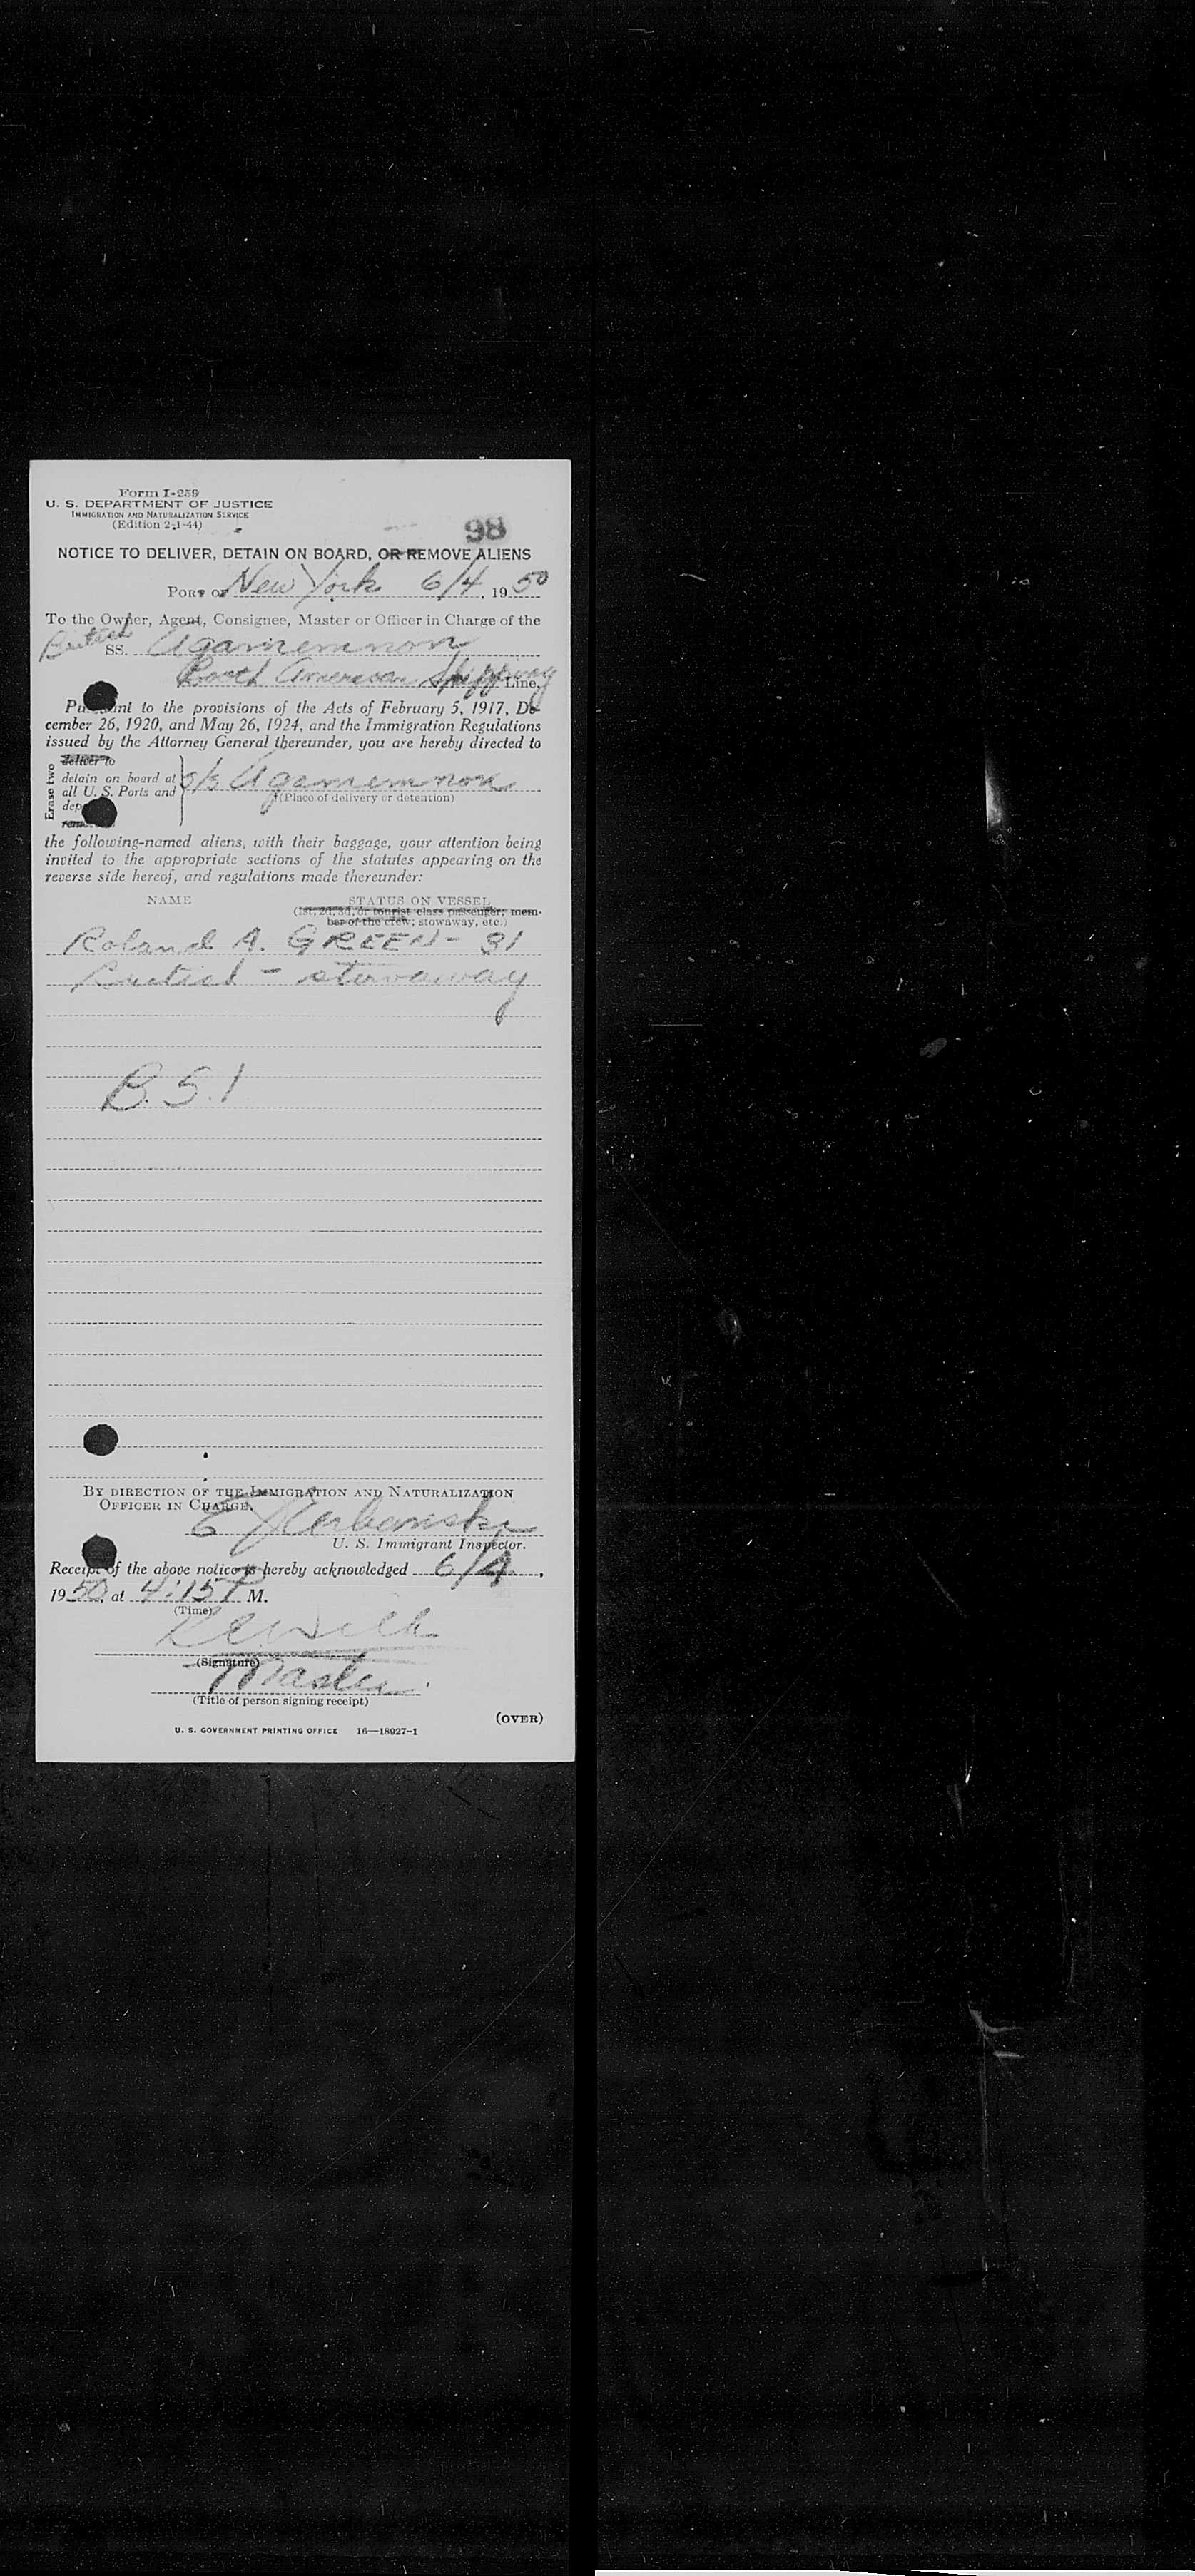 Form I-259
U. S. DEPARTMENT OF JUSTICE
IMMIGRATION AND NATURALIZATION SERVICE
(Edition 2-1-44)
98
NOTICE TO DELIVER, DETAIN ON BOARD, OR REMOVE ALIENS
PORT OF New York 6/4, 1950
To the Owner, Agent, Consignee, Master or Officer in Charge of the
British SS. Agamemnon
Booth American Shipping Line,
Pursuant to the provisions of the Acts of February 5, 1917, De-
cember 26, 1920, and May 26, 1924, and the Immigration Regulations
issued by the Attorney General thereunder, you are hereby directed to
Erase two
deliver to
detain on board at
all U. S. Ports and
s/s Agamemnon
(Place of delivery or detention)
the following-named aliens, with their baggage, your attention being
invited to the appropriate sections of the statutes appearing on the
reverse side hereof, and regulations made thereunder:
NAME STATUS ON VESSEL
(1st, 2d, 3d, or tourist class passenger; mem-
ber of the crew; stowaway, etc.)
Roland A. GREEN - 31
British - stowaway
B.S.I
BY DIRECTION OF THE IMMIGRATION AND NATURALIZATION
OFFICER IN CHARGE.
U. S. Immigrant Inspector.
Receipt of the above notice is hereby acknowledged 6/4,
1950, at 4:15 P M.
(Time)
(Signature)
Master
(Title of person signing receipt)
(OVER)
U. S. GOVERNMENT PRINTING OFFICE 16—18927-1